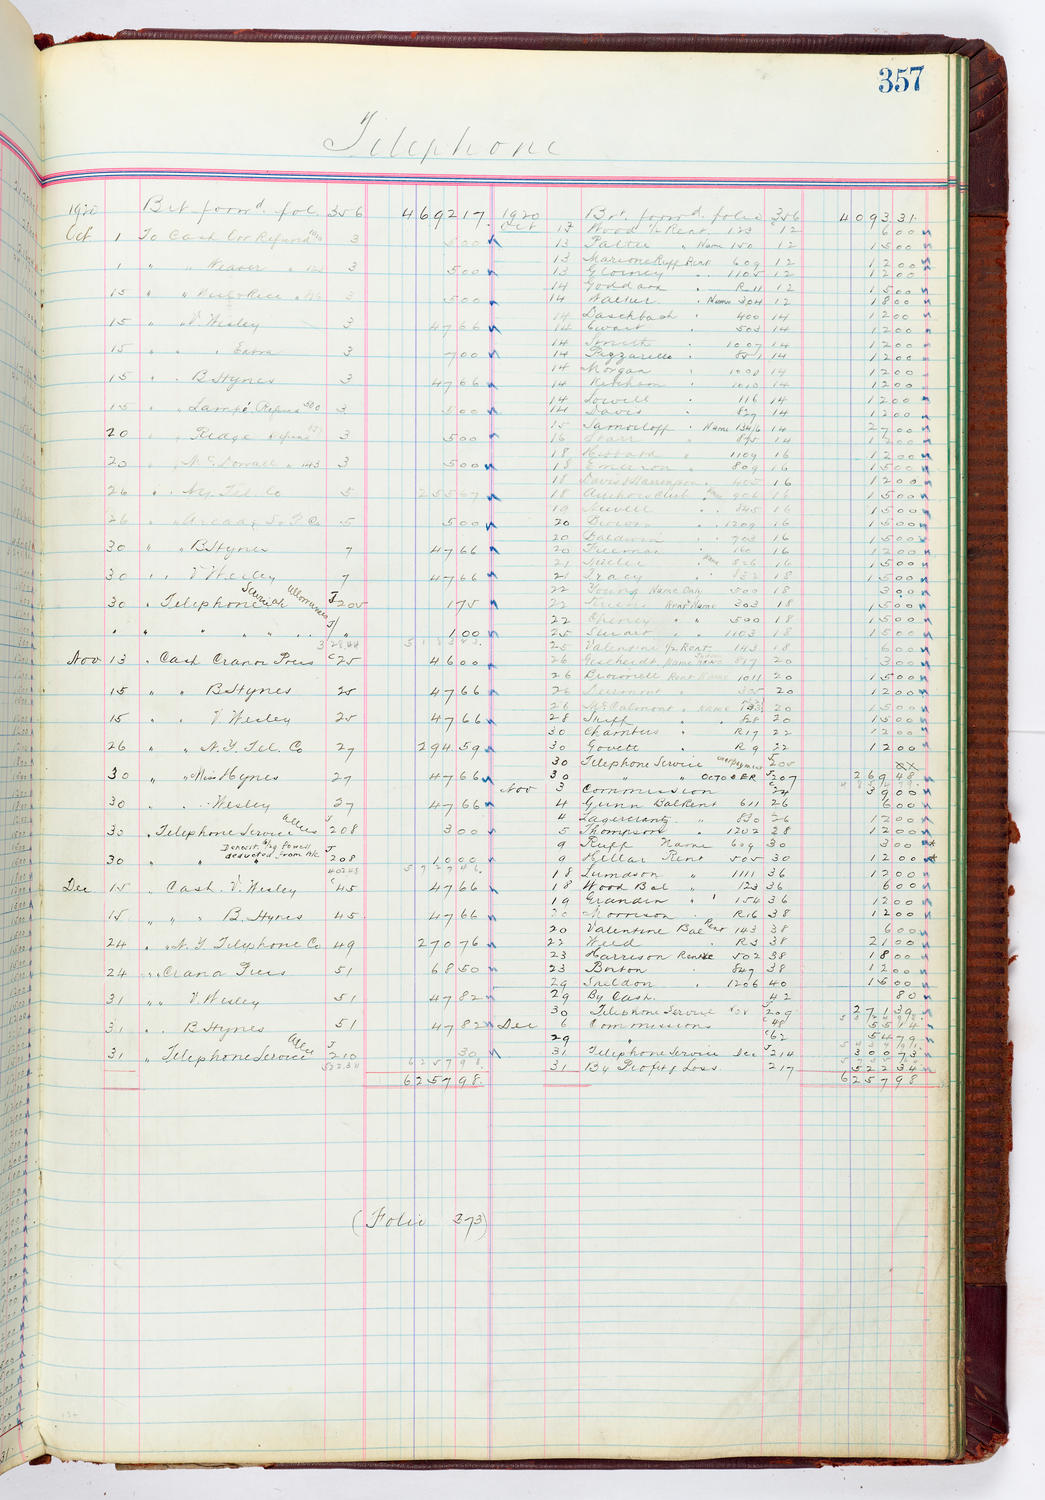 357
Telephone
1920 Brt forwd. fol. 356 4692 17
Oct 1 To Cash Refund 3 5 00
1 " " Weaver " 3 5 00
15 " " " 3 5 00
15 " " V. Wesley 3 47 66
15 " " " Extra 3 7 00
15 " " B Hynes 3 47 66
15 " " Lampé Refund 3 5 00
20 " " Ridge Refund 3 5 00
20 " " McDowall " 143 3 5 00
26 " " N.Y. Tel. Co 5 255 67
26 " " 5 5 00
30 " " B Hynes 7 47 66
30 " " V Wesley 7 47 66
30 " Telephone Service Allowances J 205 1 75
" " " " " " J/" 1 00
Nov 13 " Cash Crana Pres C 25 46 00
15 " " B Hynes 25 47 66
15 " " V. Wesley 25 47 66
26 " " N.Y. Tel. Co 27 294 59
30 " " Miss Hynes 27 47 66
30 " " Wesley 27 47 66
30 " Telephone Service Allces J 208 3 00
30 " " deducted from A/c J 208 10 00
Dec 15 " Cash. V. Wesley C 45 47 66
15 " " " B. Hynes 45 47 66
24 " " N.Y. Telephone Co 49 270 76
24 " " Crana Pres 51 68 50
31 " " V. Wesley 51 47 82
31 " " B Hynes 51 47 82
31 " Telephone Service Allce J 210 30
6257 98
6257 98
1920 Brt. forwd. folio 356 4093 31
Oct 13 Wood 1/2 Rent. 123 12 6 00
13 Palter " Name 150 12 15 00
13 Marione Ruff Rent 609 12 12 00
13 Gloiney " " 1105 12 12 00
14 Goddard " R-11 12 15 00
14 Walter " Name 304 12 18 00
14 Daschbach " 400 14 12 00
14 Ewart " 503 14 12 00
14 Smith " 1007 14 12 00
14 Pizzarello " 851 14 12 00
14 Morgan " 1008 14 12 00
14 Ketcham " 1010 14 12 00
14 Lowell " 116 14 12 00
14 Davis " 827 14 12 00
15 Samoiloff " Name 1346 14 27 00
16 Starr " 875 14 12 00
18 Hibbard " 1109 16 12 00
18 Emerson " 809 16 15 00
18 Davis & Davenport " 405 16 12 00
18 Authors Club " 906 16 15 00
19 Newell " " 845 16 15 00
20 Brown " " 1209 16 15 00
20 Baldwin " " 703 16 15 00
20 Freeman " 160 16 12 00
21 " 826 16 15 00
21 Tracy " 832 18 15 00
22 Young Name Only 500 18 3 00
22 Rent & Name 303 18 15 00
22 Cheney " " 500 18 15 00
25 Stewart " " 1103 18 15 00
25 Valentine 1/2 Rent 143 18 6 00
26 Name 817 20 3 00
26 Brownell Rent Name 1011 20 15 00
26 " 305 20 12 00
26 McCalmont " Name 20 15 00
28 Tuff " " 828 20 15 00
30 Chambers " R17 22 12 00
30 Govett " R 9 22 12 00
30 Telephone Service overpayment J 205 XX
30 " " OCTOBER J 207 269 48
Nov 3 Commission C 24 39 00
4 Gunn Bal Rent 611 26 6 00
4 Lagercrantz " 830 26 12 00
5 Thompson " 1202 28 12 00
9 Ruff Name 609 30 3 00
9 Hellar Rent 505 30 12 00
18 Lumdson " 1111 36 12 00
18 Wood Bal " 123 36 6 00
19 Grandin " " 154 36 12 00
20 Morrison " R16 38 12 00
20 Valentine Bal Rent 143 38 6 00
22 Weed " R3 38 21 00
23 Harrison Rent 502 38 18 00
23 Borton " 847 38 12 00
29 Sheldon " 1206 40 15 00
29 By Cash. 42 80
30 Telephone Service Nov J 209 271 39
Dec 6 Commissions C 48 55 14
29 " C 62 54 79
31 Telephone Service Dec J 214 300 73
31 By Profit & Loss 217 522 34
6257 98
(Folio 373)